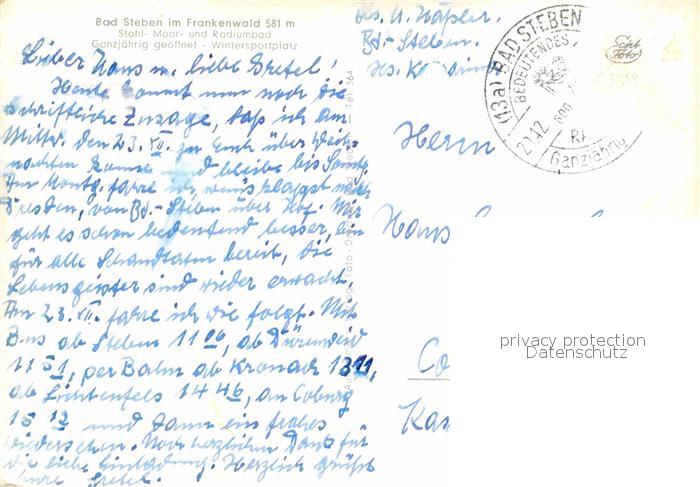 Bad Steben im Frankenwald 581 m
Stahl- Moor- und Radiumbad
Ganzjährig geöffnet - Wintersportplatz
Lieber Hans u. liebe Gretel!
Heute kommt nun noch die
schriftliche Zusage, daß ich am
Mittw. den 23. XII. zu Euch über Weih-
nachten komme und bleibe bis Sonntg.
Am Montg. fahre ich, wenn's klappt nach
Dresden, von Bd.-Steben über Hof. Mir
geht es schon bedeutend besser, bin
für alle Schandtaten bereit, die
Lebensgeister sind wieder erwacht.
Am 23. XII. fahre ich wie folgt. Mit
Bus ab Steben 11 06, ab Dürrenwaid
11 51, per Bahn ab Kronach 13 11,
ab Lichtenfels 14 46, an Coburg
15 12 und dann ein frohes
Wiedersehen. Noch herzlichen Dank für
die liebe Einladung. Herzlich grüßt
Eure Gretel.
Abs. A. Häßler.
Bd.-Steben.
Hs.
(13a) BAD STEBEN
BEDEUTENDES
21.12
Ganzjährig
Schit
Foto
1959
Herrn
Hans
Co
Kas
privacy protection
Datenschutz